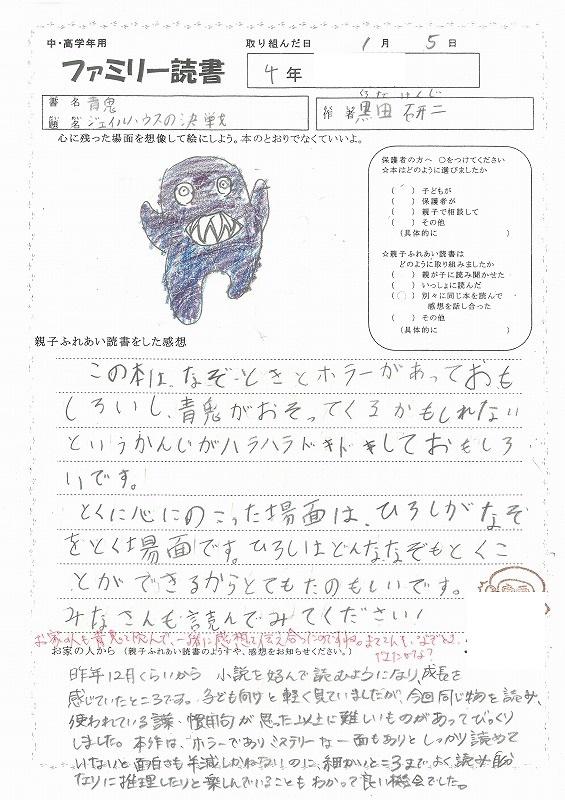 中・高学年用
取り組んだ日 1月 5日
ファミリー読書
4年
書名 青鬼
題名 ジェイルハウスの決戦
だい めい
くろだ けんじ
作者 黒田 研二
心に残った場面を想像して絵にしよう。本のとおりでなくていいよ。
保護者の方へ ○をつけてください
☆本はどのように選びましたか
( )子どもが
( )保護者が
( )親子で相談して
( )その他
(具体的に )
☆親子ふれあい読書は
どのように取り組みましたか
( )親が子に読み聞かせた
( )いっしょに読んだ
( )別々に同じ本を読んで
感想を話し合った
( )その他
(具体的に )
親子ふれあい読書をした感想
この本は、なぞときとホラーがあっておも
しろいし、青鬼がおそってくるかもしれない
というかんじがハラハラドキドキしておもしろ
いです。
とくに心にのこった場面は、ひろしがなぞ
をとく場面です。ひろしはどんななぞもとくこ
とができるからとてもたのもしいです。
みなさんも読んでみてください!
お家の人も青鬼を読んで、一緒に感想を伝え合ったのですね。
お家の人から (親子ふれあい読書のようすや、感想をお知らせください。)
昨年12月くらいから 小説を好んで読むようになり、成長を
感じていたところです。子ども向けと軽く見ていましたが、今回同じ物を読み、
使われている言葉・慣用句が思った以上に難しいものがあってびっくり
しました。本作は、ホラーでありミステリーな一面もありとしっかり読めて
いないと面白さも半減しかねないのに、細かいところまでよく読み自分
なりに推理したりと楽しんでいることもわかって良い機会でした。